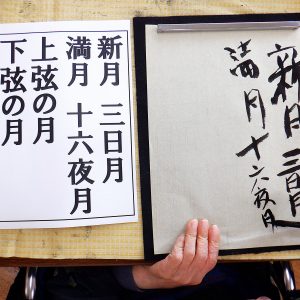 新月 三日月
満月 十六夜月
上弦の月
下弦の月
新月 三日月
満月 十六夜月